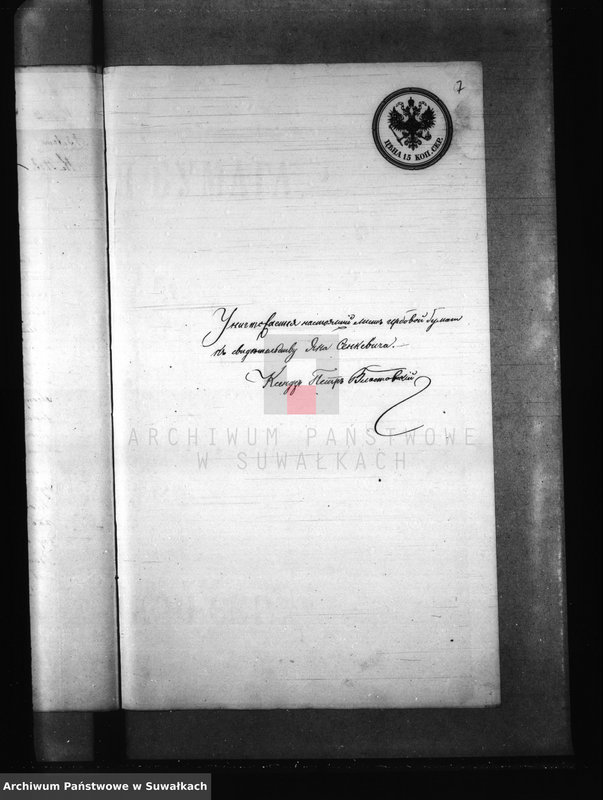 7
ЦѢНА 15 КОП. СЕР.
Уничтожается настоящій листъ гербовой бумаги
къ свидѣтельству Яна Сенкевича.
Ксендзъ Петръ
ARCHIWUM PAŃSTWOWE
W SUWAŁKACH
Archiwum Państwowe w Suwałkach